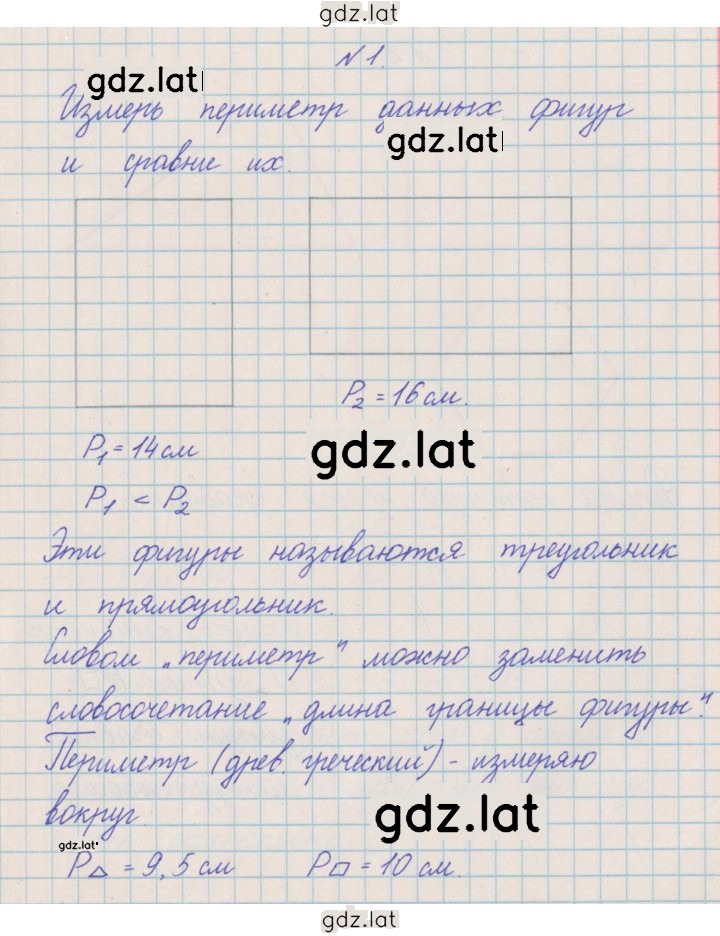 gdz.lat
№ 1.
gdz.lat
Измерь периметр данных фигур
gdz.lat
и сравни их.
P₂ = 16 см.
P₁ = 14 см
gdz.lat
P₁ < P₂
Эти фигуры называются треугольник
и прямоугольник.
Словом „периметр" можно заменить
словосочетание „длина границы фигуры".
Периметр (древ. греческий) - измеряю
вокруг.
gdz.lat
gdz.lat
P△ = 9,5 см P□ = 10 см.
gdz.lat